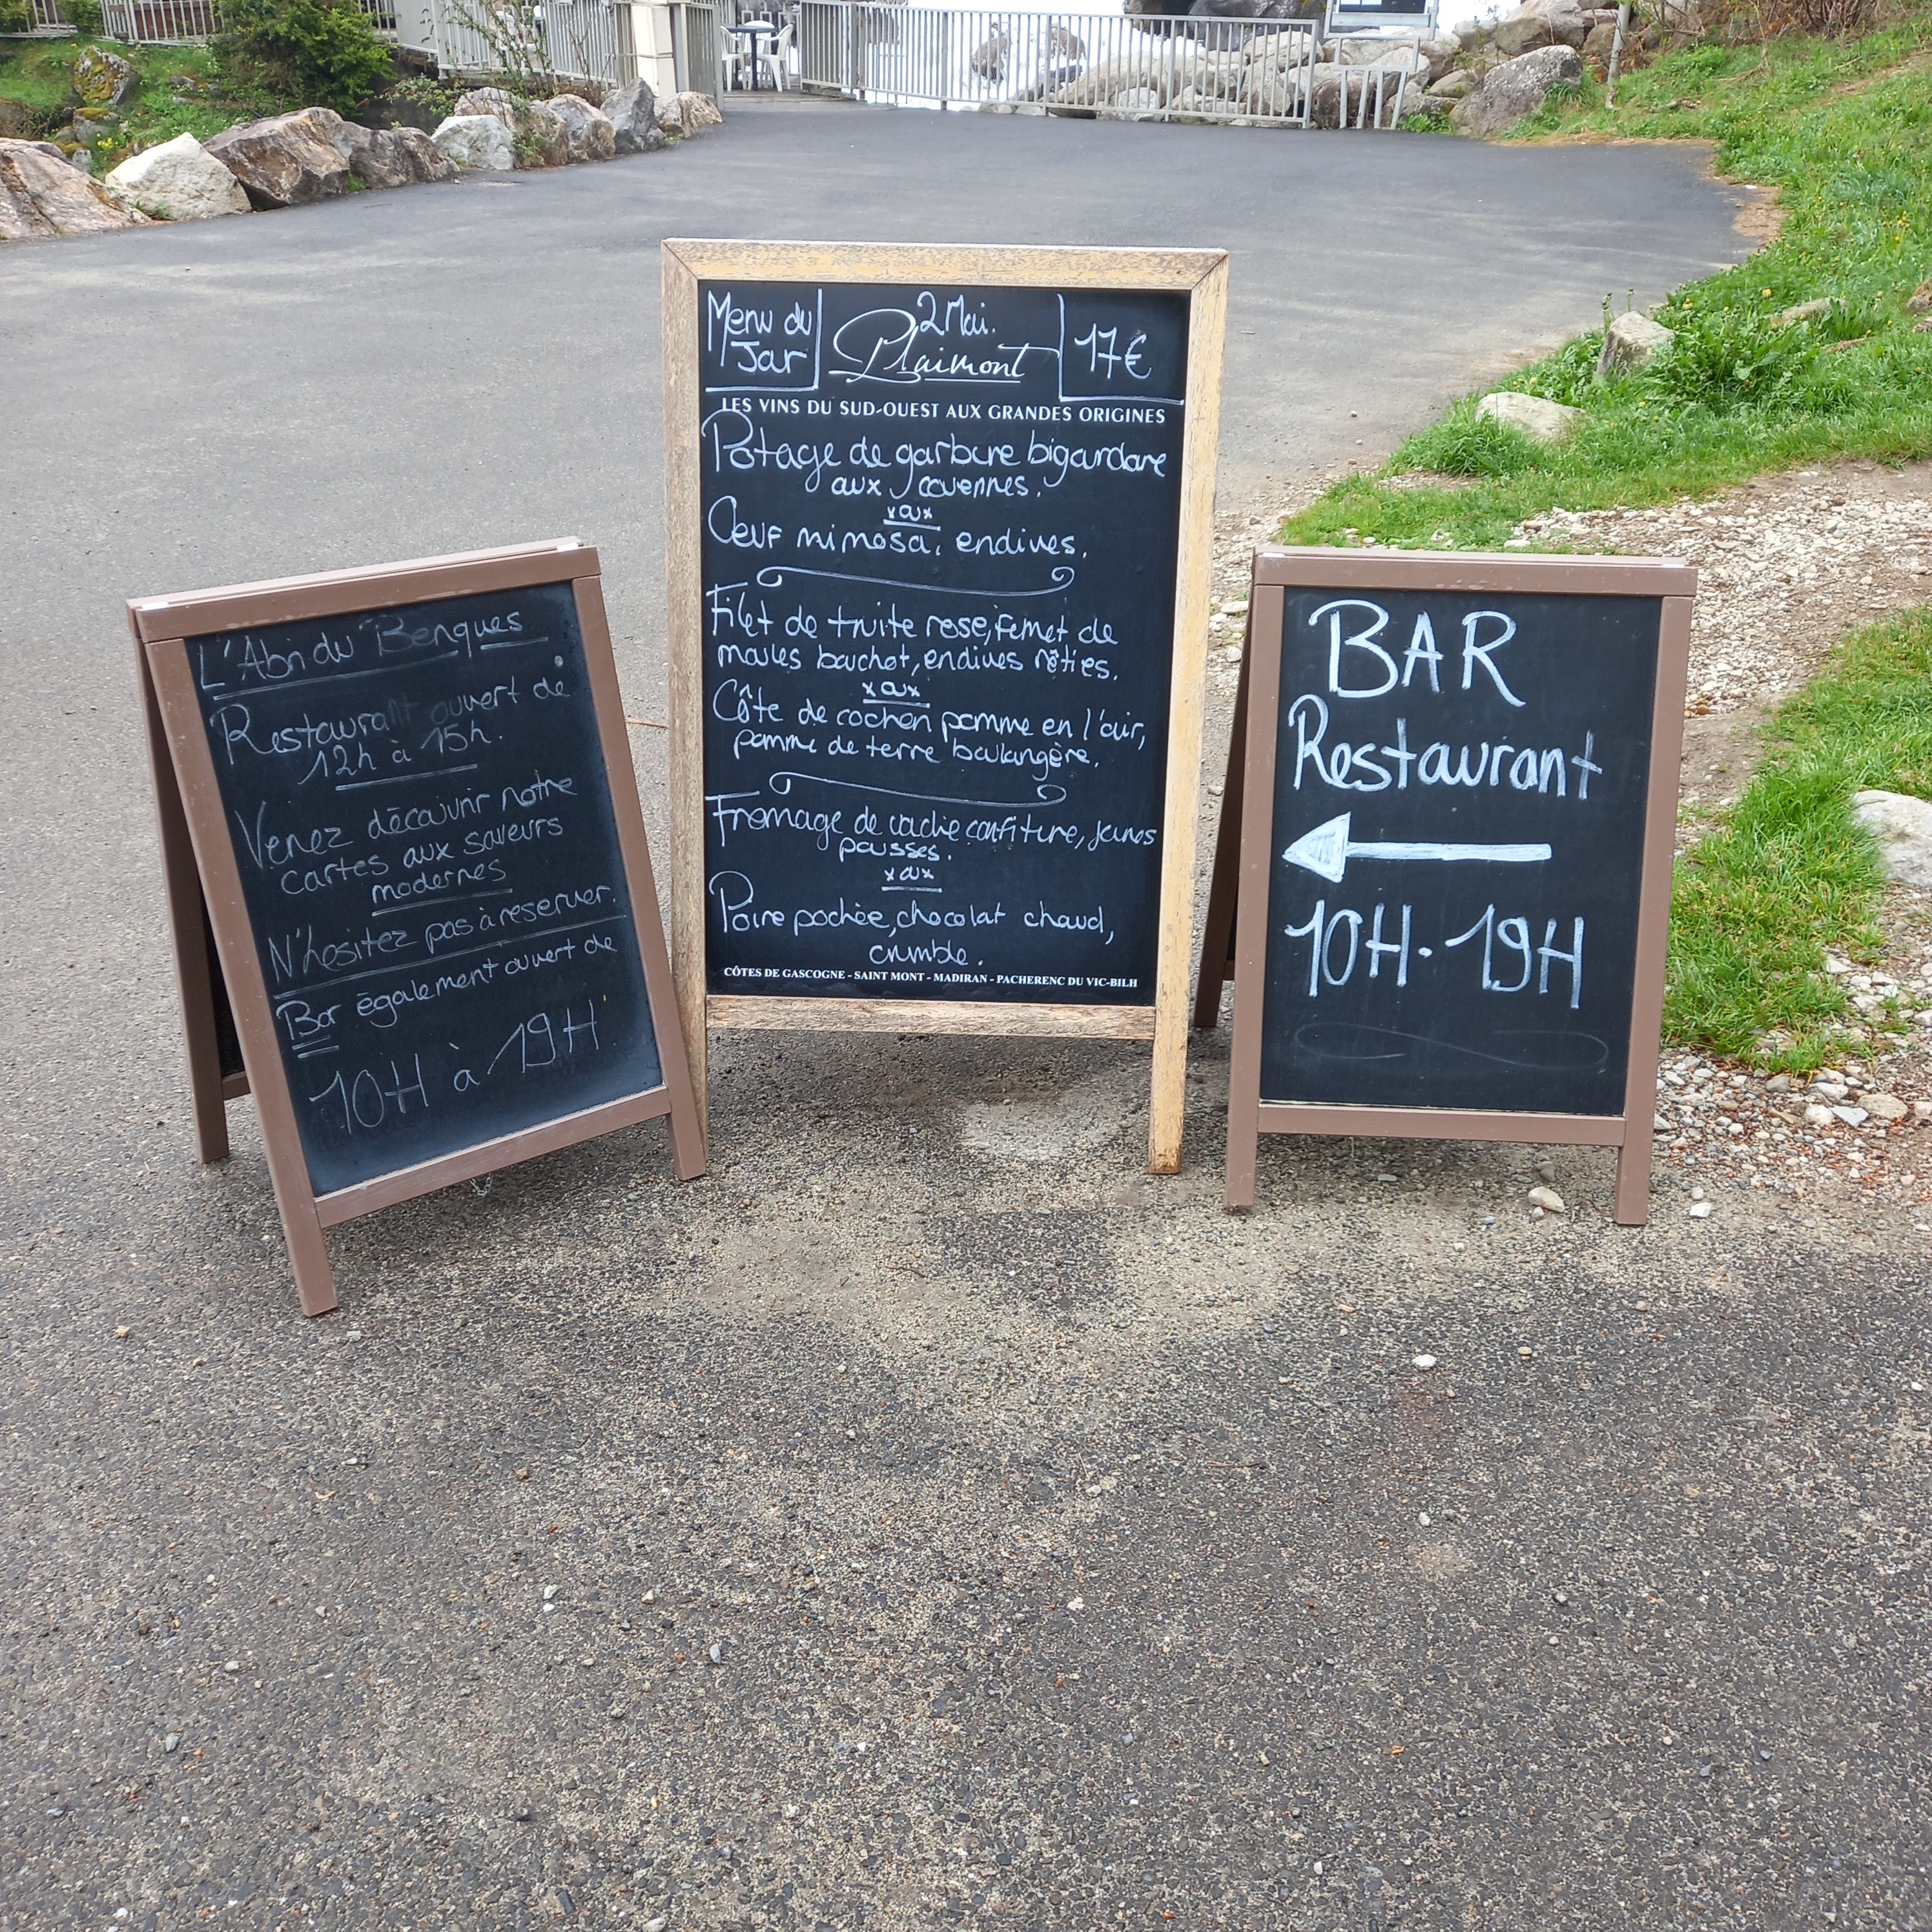 L'Abri du Benques
Restaurant ouvert de
12h à 15h.
Venez découvrir notre
cartes aux saveurs
modernes
N'hesitez pas à reserver.
Bar également ouvert de
10H à 19H.
Menu du
Jour
2 Mai.
Plaimont
17€
LES VINS DU SUD-OUEST AUX GRANDES ORIGINES
Potage de garbure bigourdane
aux couennes.
x ou x
Oeuf mimosa, endives.
Filet de truite rose, fumet de
moules bouchot, endives rôties.
x ou x
Côte de cochon pomme en l'air,
pomme de terre boulangère.
Fromage de vache confiture, jeunes
pousses.
x ou x
Poire pochée, chocolat chaud,
crumble.
CÔTES DE GASCOGNE - SAINT MONT - MADIRAN - PACHERENC DU VIC-BILH
BAR
Restaurant
10H - 19H